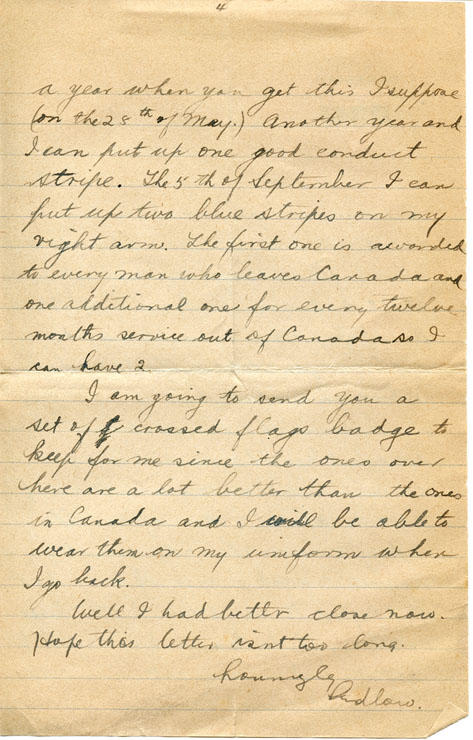 4
a year when you get this I suppose
(on the 28th of May.) Another year and
I can put up one good conduct
stripe. The 5th of September I can
put up two blue stripes on my
right arm. The first one is awarded
to every man who leaves Canada and
one additional one for every twelve
months service out of Canada so I
can have 2.
I am going to send you a
set of crossed flags badge to
keep for me since the ones over
here are a lot better than the ones
in Canada and I will be able to
wear them on my uniform when
I go back.
Well I had better close now.
Hope this letter isnt too long.